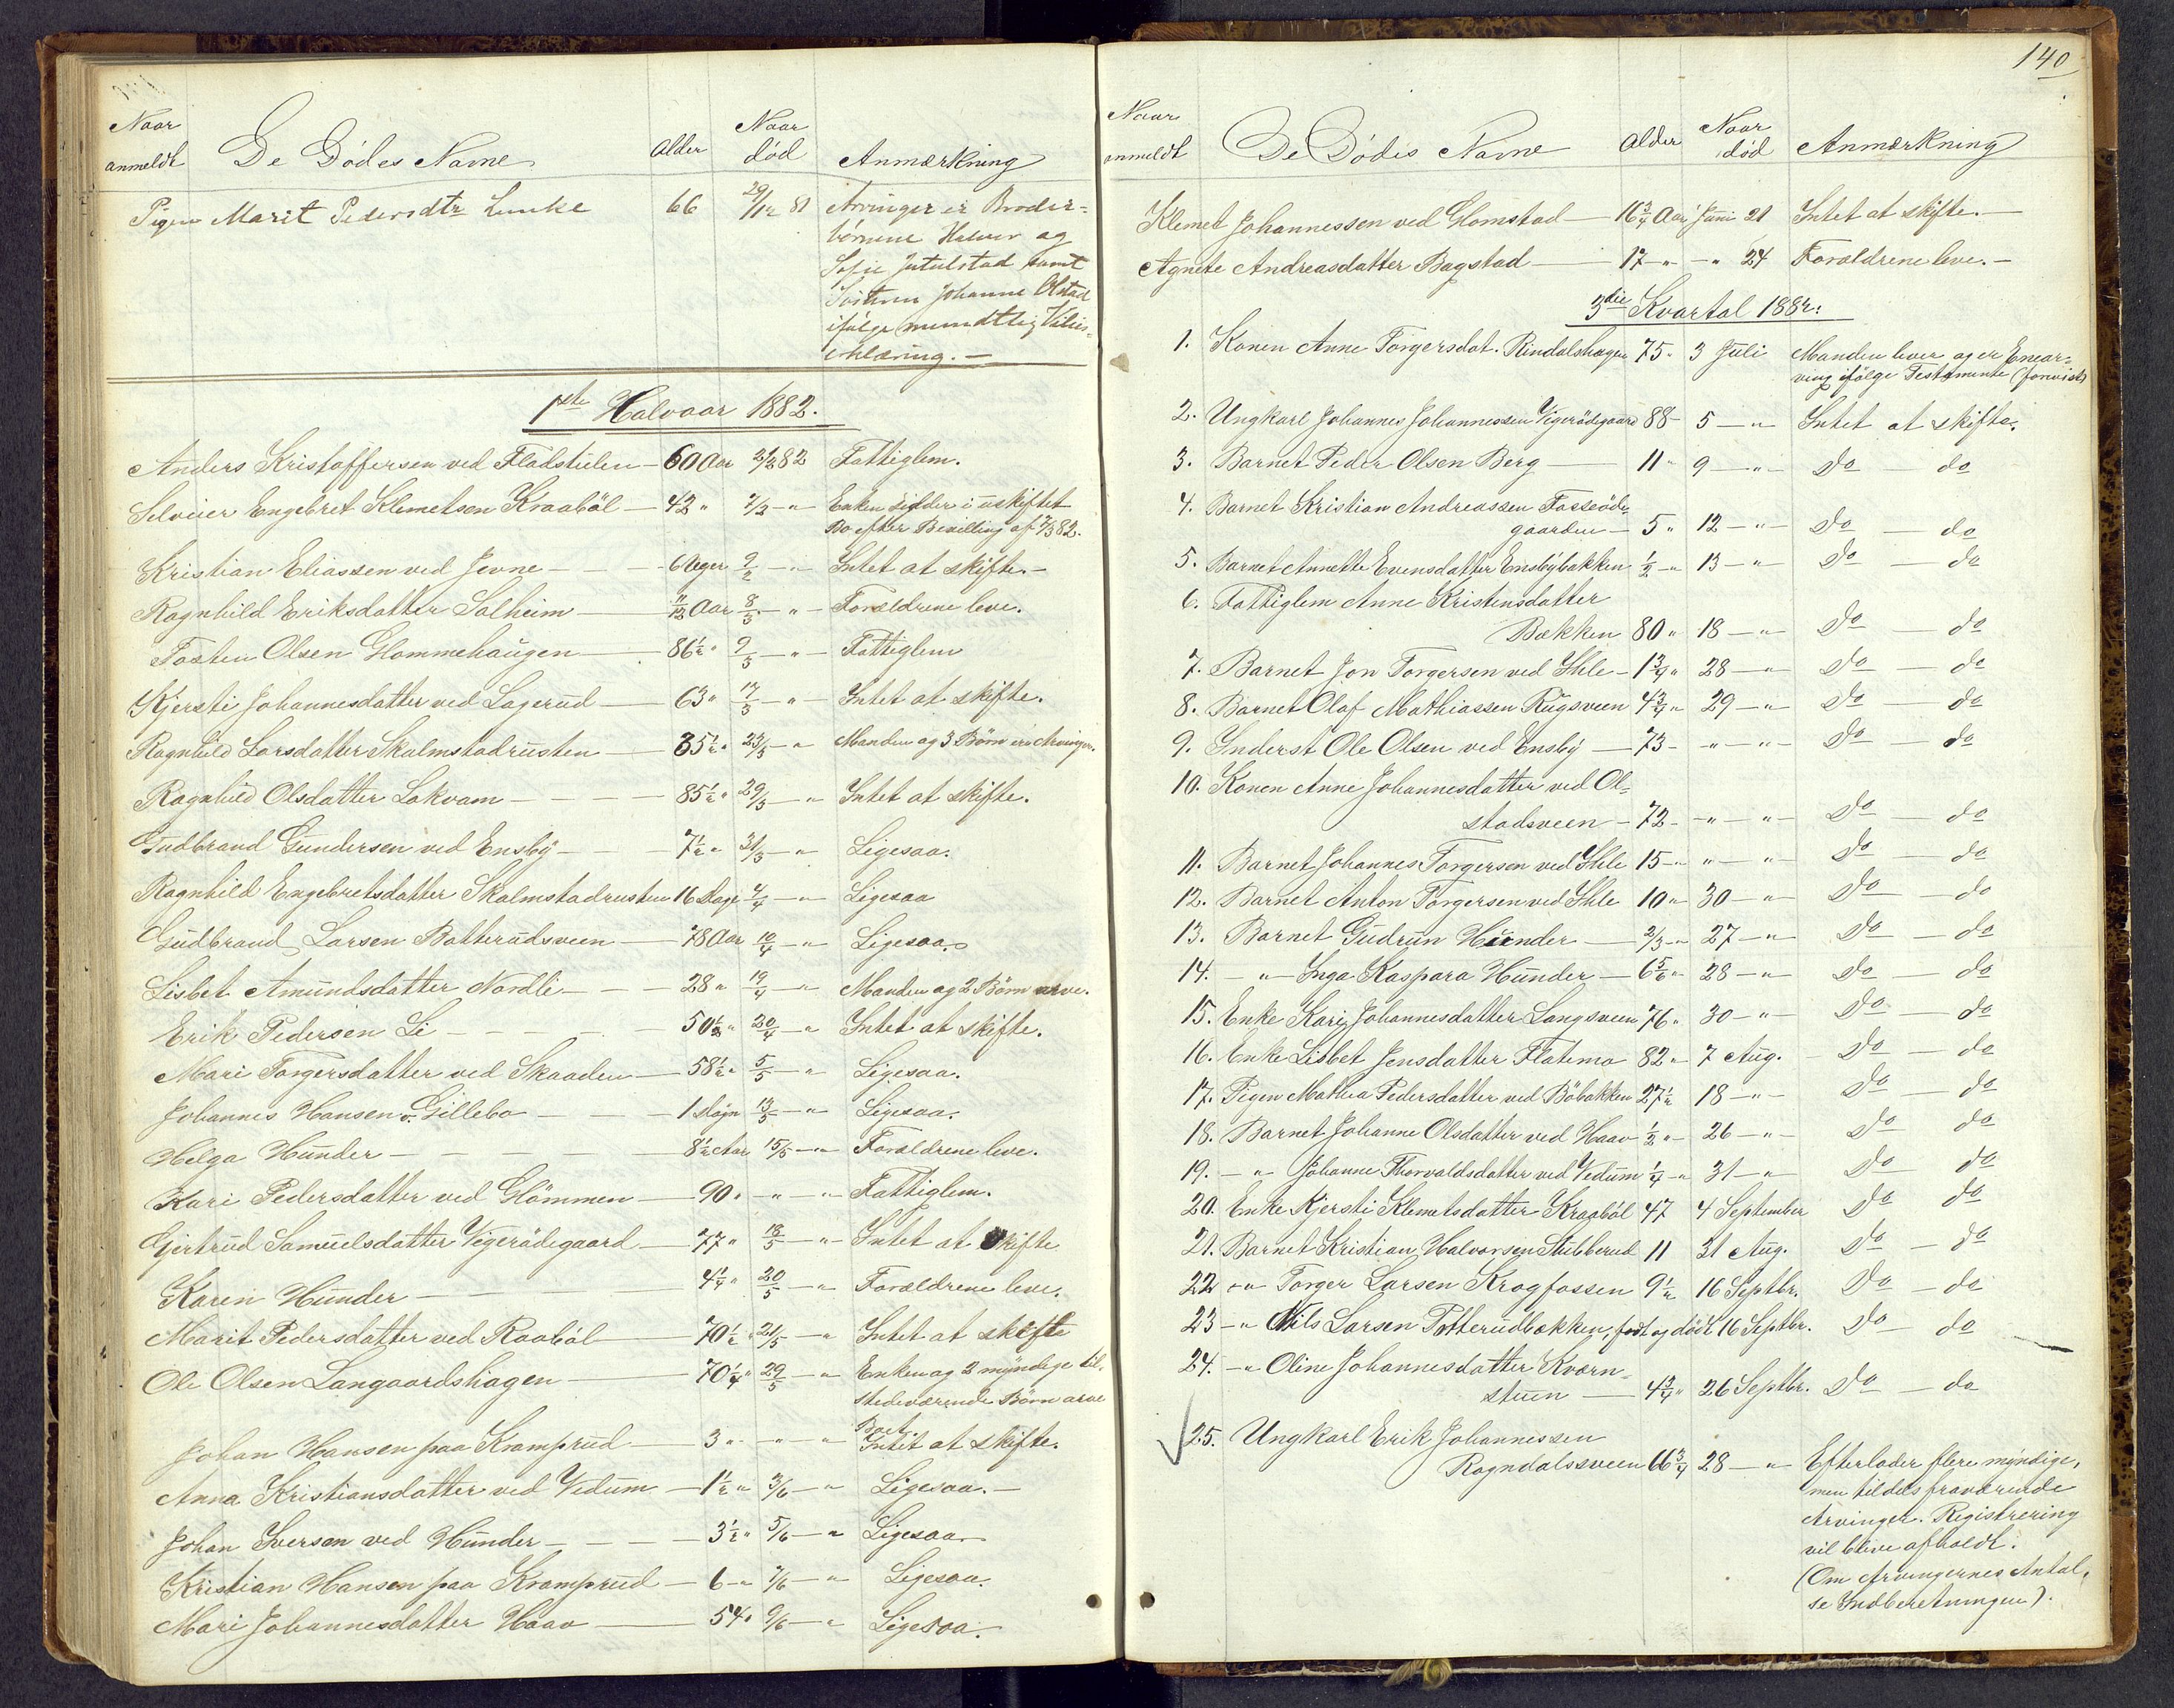 Naar anmeldt De Dødes Navne Alder Naar død Anmærkning
Pigen Marit Pedersdtr Lunke 66 29/12 81 Arvinger er Broder-
börnene Halvor og
Sofie Jutulstad samt
Søsteren Johanne Olstad
ifølge mundtlig Vilies-
erklæring. —
1ste Halvaar 1882.
Anders Kristoffersen ved Flådstulen — 60 Aar 2/2 82 Fattiglem.
Selveier Engebret Klemetsen Kraaböl — 42 " 2/2 — " — Enken sidder i uskiftet
Bo efter Bevilling af 7/3 82.
Kristian Eliassen ved Jevne — 6 Uger 9/2 — " — Intet at skifte. —
Ragnhild Eriksdatter Solheim — 11/12 Aar 8/3 — " — Forældrene leve.
Tosten Olsen Glommehaugen — 86½ " 9/3 — " — Fattiglem
Kjersti Johannesdatter ved Lagerud — 63 " 17/3 — " — Intet at skifte.
Ragnhild Larsdatter Skalmstadrusten — 35½ " 23/3 — " Manden og 3 Børn ere Arvinger.
Ragnhild Olsdatter Lokvam — 85½ " 29/3 — " Intet at skifte.
Gudbrand Gundersen ved Ensby — 7½ " 31/3 — " Ligesaa.
Ragnhild Engebretsdatter Skalmstadrusten 16 Dage 4/4 — " Ligesaa
Gudbrand Larsen Batterudsveen — 78 Aar 10/4 — " Ligesaa.
Lisbet Amundsdatter Nordli — 28 " 19/4 — " Manden og 2 Børn arve.
Erik Pedersen Li — 50½ " 20/4 — " Intet at skifte.
Mari Torgersdatter ved Skaaden — 58½ " 5/5 — " Ligesaa.
Johannes Hansen v. Gillebo — 1 Døgn 13/5 — " Ligesaa.
Helga Hunder — 8½ Aar 15/5 — " Forældrene leve.
Kari Pedersdatter ved Glömmen — 90 " — " — " Fattiglem.
Gjertrud Samuelsdatter Vigerödegaard — 77 " 18/5 — " Intet at skifte
Karen Hunder — 4¼ " 20/5 — " Forældrene leve.
Marit Pedersdatter ved Raaböl — 70½ " 21/5 — " Intet at skifte
Ole Olsen Langaardshagen — 70¼ " 29/5 — " Enken og 2 myndige til-
stedeværende Børn arve
Boet.
Johan Hansen paa Kramprud — 3 " — " — " Intet at skifte.
Anna Kristiansdatter ved Vedum — 1½ " 3/6 — " Ligesaa. —
Johan Iversen ved Hunder — 3½ " 5/6 — " Ligesaa
Kristian Hansen paa Kramprud — 6 — " 7/6 — " Ligesaa.
Mari Johannesdatter Haav — 54 " 9/6 — " Ligesaa.
140
Naar anmeldt De Dødes Navne Alder Naar død Anmærkning
Klemet Johannessen ved Glomstad — 16¾ Aar Juni 21 Intet at skifte. —
Agnete Andreasdatter Bagstad — 17 — " — " 24 Forældrene leve. —
3die Kvartal 1882:
1. Konen Anne Torgersdat. Rindalshagen 75 " 3 Juli Manden lever og er Enear-
ving ifölge Testamente (forevist)
2. Ungkarl Johannes Johannessen Vigerödegaard 88 — 5 — " Intet at skifte.
3. Barnet Peder Olsen Berg — 11 " 9 — " Do — do
4. Barnet Kristian Andreassen Fosseöde-
gaarden — 5 " 12 — " Do — do
5. Barnet Annette Evensdatter Ensbybakken ½ — " 13 — " Do — do
6. Fattiglem Anne Kristensdatter
Bækken 80 " 18 — " Do — do
7. Barnet Jon Torgersen ved Ihle — 1¾ " 28 — " Do — do
8. Barnet Olaf Mathiassen Rugsveen 4¾ " 29 — " Do — do
9. Inderst Ole Olsen ved Ensby — 73 — " — " Do — do
10. Konen Anne Johannesdatter ved Ol-
stadsveen — 72 — " — " Do — do
11. Barnet Johannes Torgersen ved Ihle 15 — " " — " Do — do
12. Barnet Anton Torgersen ved Ihle 10 — " 30 — " Do — do
13. Barnet Gudrun Hunder — 2/3 — " 27 — " Do — do
14. — " — Inga Kaspara Hunder — 6 5/6 " 28 — " Do — do
15. Enke Kari Johannesdatter Langsveen 76 " 30 — " Do — do
16. Enke Lisbet Jensdatter Flatemo 82 " 7 Aug. Do — do
17. Pigen Mathea Pedersdatter ved Böbakken 27½ 18 — " Do — do
18. Barnet Johanne Olsdatter ved Haav ½ " 26 — " Do do
19. — " Johanne Thorvaldsdatter ved Vedum ¼ " 31 — " Do do
20. Enke Kjersti Klemetsdatter Kraaböl 47 4 September Do do
21. Barnet Kristian Halvorsen Stubberud 11 31 Aug. Do — do
22 — " Torger Larsen Krogfossen 9½ 16 Septbr. Do — do
23 — " Nils Larsen Totterudbækken, født og død 16 Septbr. Do — do
24. — " Oline Johannesdatter Kværn-
stuen — 4¾ " 26 Septbr. Do — do
25. Ungkarl Erik Johannessen
Rogndalsveen 66¾ 28 — " Efterlader flere myndige,
men tildels fraværende
Arvinger. Registrering
vil blive afholdt.
(Om Arvingernes Antal,
se Indberetningen).